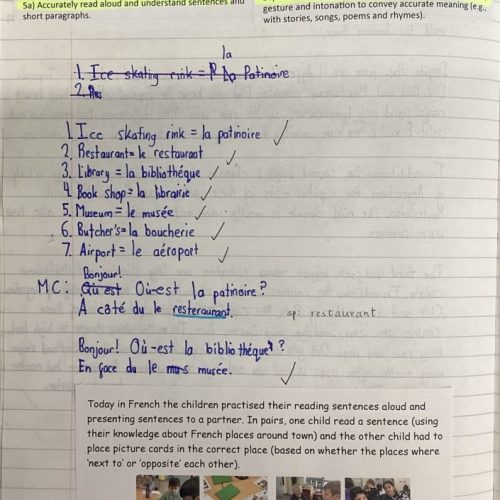 5a) Accurately read aloud and understand sentences and
short paragraphs.
gesture and intonation to convey accurate meaning (e.g.,
with stories, songs, poems and rhymes).
la
1. Ice skating rink = Patinoire
2.
1. Ice skating rink = la patinoire
2. Restaurant = le restaurant
3. Library = la bibliothéque
4. Book shop = la librairie
5. Museum = le musée
6. Butcher's = la boucherie
7. Airport = le aéroport
Bonjour!
MC: Où est Où-est la patinoire?
A caté du le resteraurant.
sp restaurant
Bonjour! Où-est la bibliothéque?
En face du le mus musée.
Today in French the children practised their reading sentences aloud and
presenting sentences to a partner. In pairs, one child read a sentence (using
their knowledge about French places around town) and the other child had to
place picture cards in the correct place (based on whether the places where
'next to' or 'opposite' each other).